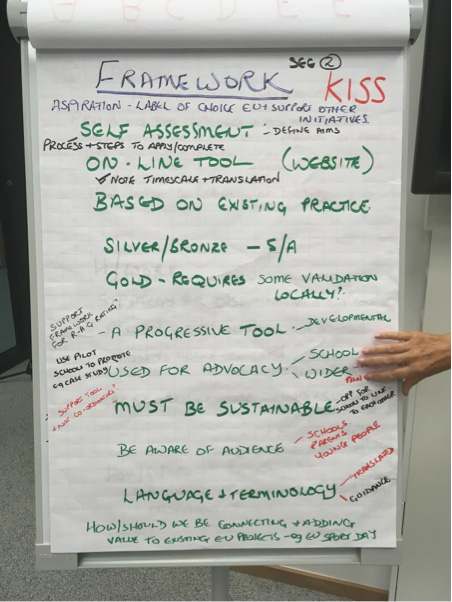 A B C D E E
SEG ②
FRAMEWORK
KISS
ASPIRATION - LABEL OF CHOICE EU + SUPPORT OTHER INITIATIVES
SELF ASSESSMENT - DEFINE AIMS
PROCESS + STEPS TO APPLY/COMPLETE
ON-LINE TOOL (WEBSITE)
✓ NOTE TIMESCALE + TRANSLATION
BASED ON EXISTING PRACTICE
SILVER/BRONZE - S/A
GOLD - REQUIRES SOME VALIDATION
LOCALLY?
SUPPORT
FRAMEWORK
FOR R-A-G RATING?
- A PROGRESSIVE TOOL - DEVELOPMENTAL
USE PILOT
SCHOOLS TO PROMOTE
eg CASE STUDY
USED FOR ADVOCACY - SCHOOL
WIDER
SUPPORT TOOL
MUST BE SUSTAINABLE - OPP FOR
SCHOOL TO LINK
TO EACH OTHER
BE AWARE OF AUDIENCE - SCHOOLS
PARENTS
YOUNG PEOPLE
LANGUAGE + TERMINOLOGY - TRANSLATED
GUIDANCE
HOW/SHOULD WE BE CONNECTING + ADDING
VALUE TO EXISTING EU PROJECTS - eg EU SPORT DAY